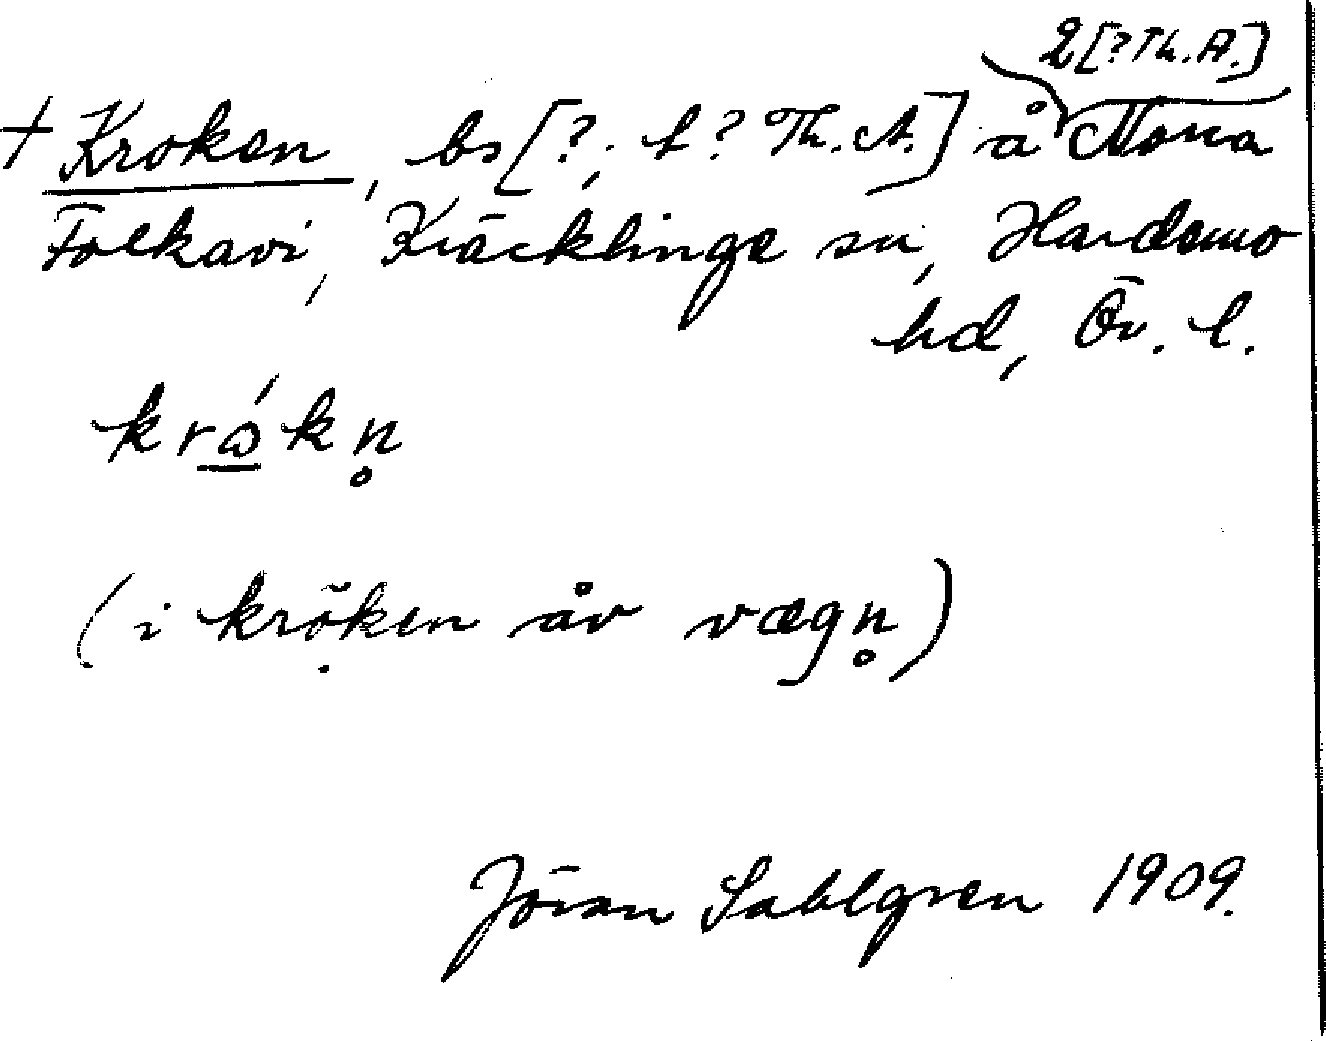 2 [? Th. A.]
+ Kroken, bs [?, t? Th. A.] å Norra
Folkavi, Kräcklinge sn, Hardemo
hd, Ör. l.
krώkn̥
(i krọ̃ken åv vægn̥)
Jöran Sahlgren 1909.